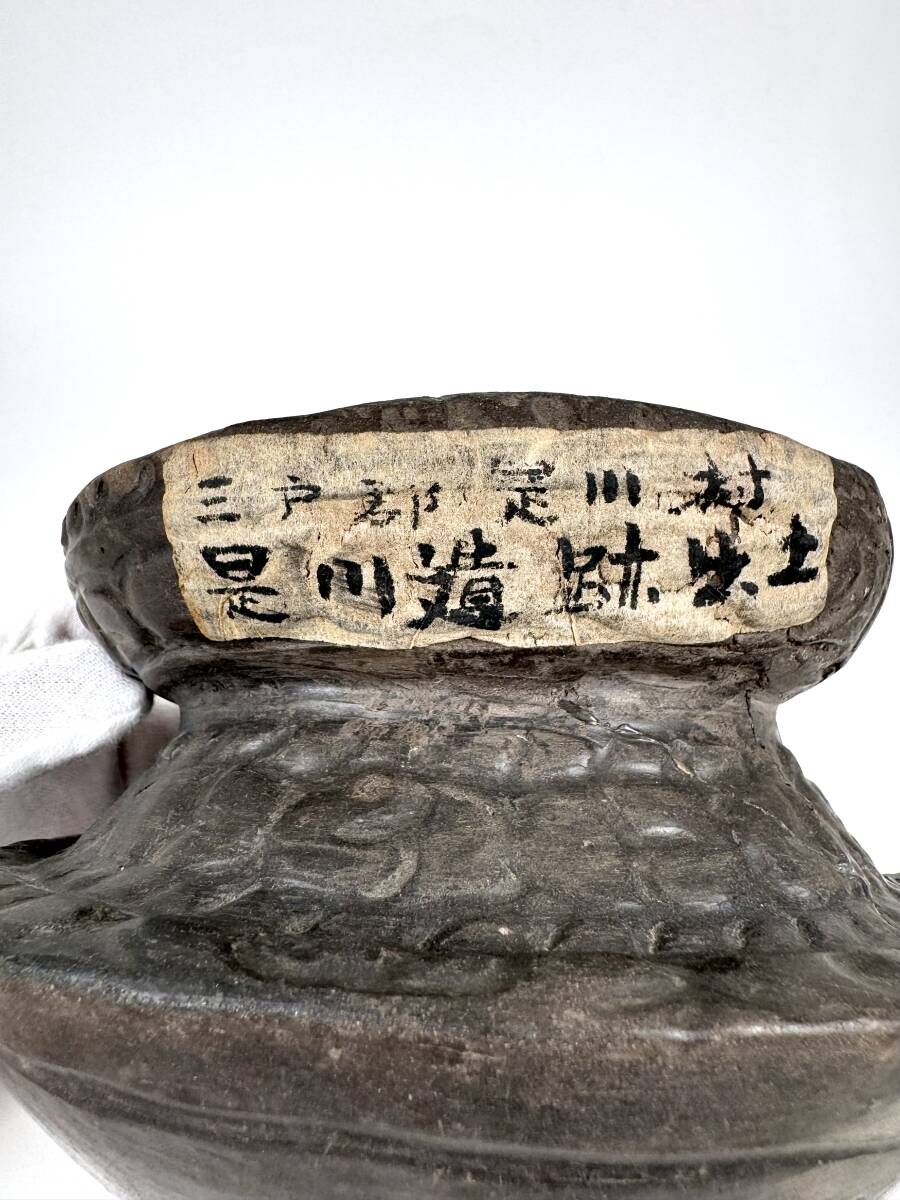 三戸郡是川村
是川遺跡出土